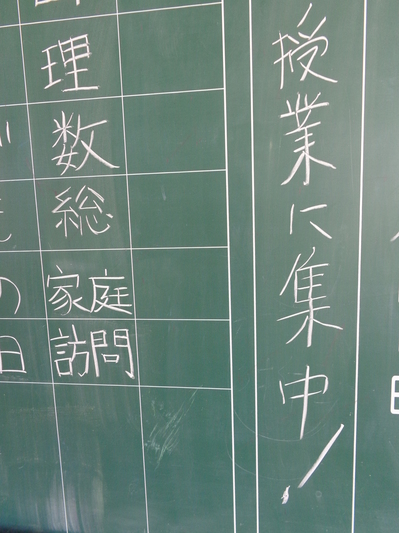 授業に集中！
理
数
総
家庭
訪問
の
日